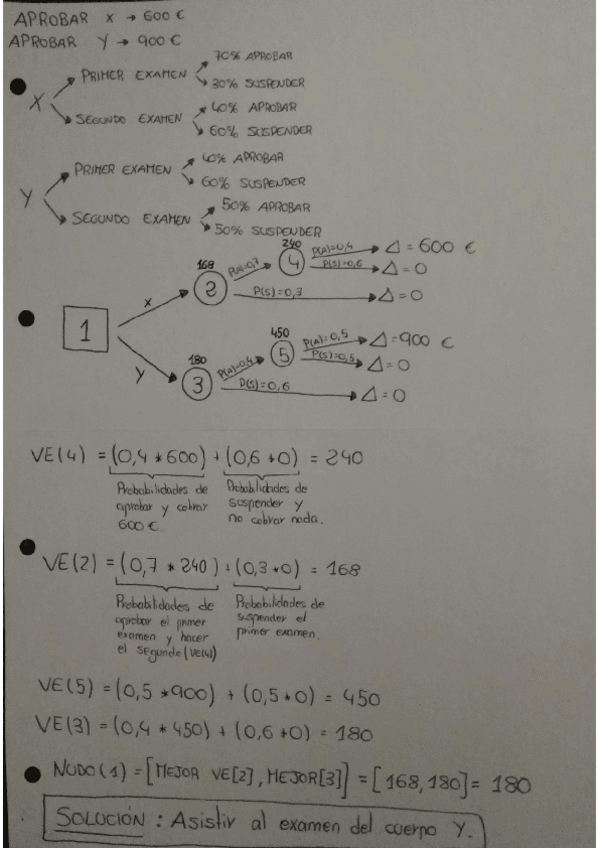 APROBAR X → 600 €
APROBAR Y → 900 €
X
PRIMER EXAMEN
70% APROBAR
30% SUSPENDER
SEGUNDO EXAMEN
40% APROBAR
60% SUSPENDER
Y
PRIMER EXAMEN
40% APROBAR
60% SUSPENDER
SEGUNDO EXAMEN
50% APROBAR
50% SUSPENDER
1
X
168
2
P(A)=0,7
240
4
P(A)=0,4
Δ = 600 €
P(S)=0,6
Δ = 0
P(S)=0,3
Δ = 0
Y
180
3
P(A)=0,4
450
5
P(A)=0,5
Δ = 900 €
P(S)=0,5
Δ = 0
P(S)=0,6
Δ = 0
VE(4) = (0,4 * 600) + (0,6 * 0) = 240
Probabilidades de aprobar y cobrar 600 €.
Probabilidades de suspender y no cobrar nada.
VE(2) = (0,7 * 240) + (0,3 * 0) = 168
Probabilidades de aprobar el primer examen y hacer el segundo (VE(4))
Probabilidades de suspender el primer examen.
VE(5) = (0,5 * 900) + (0,5 * 0) = 450
VE(3) = (0,4 * 450) + (0,6 * 0) = 180
NUDO(1) = [MEJOR VE[2], MEJOR[3]] = [168, 180] = 180
SOLUCIÓN : Asistir al examen del cuerpo Y.